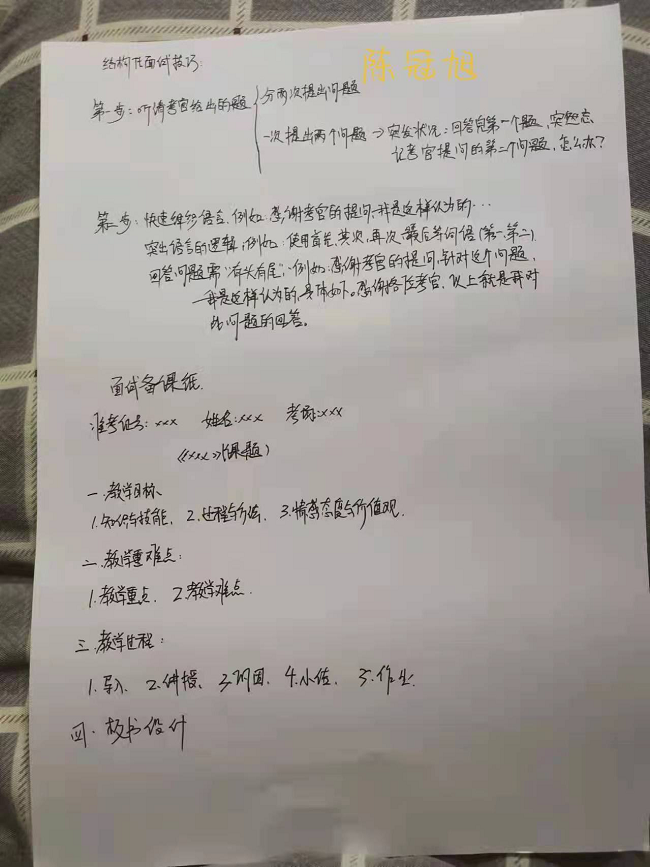 结构化面试技巧:
陈冠旭
第一步:听清考官给出的题
分两次提出问题
一次提出两个问题→突发状况:回答完第一个题,突然忘
记考官提问的第二个问题,怎么办?
第二步:快速组织语言,例如:感谢考官的提问,我是这样认为的…
突出语言的逻辑,例如:使用首先、其次、再次、最后等词语(第一第二)
回答问题需“有头有尾”,例如:感谢考官的提问,针对这个问题,
我是这样认为的,具体如下。感谢各位考官,以上就是我对
此问题的回答。
面试备课纸
准考证号:xxx 姓名:xxx 考场:xxx
《xxx》(课题)
一.教学目标、
1.知识与技能、2.过程与方法、3.情感态度与价值观.
二.教学重难点:
1.教学重点、2.教学难点.
三.教学过程:
1.导入、2.讲授、3.巩固、4.小结、5.作业.
四.板书设计